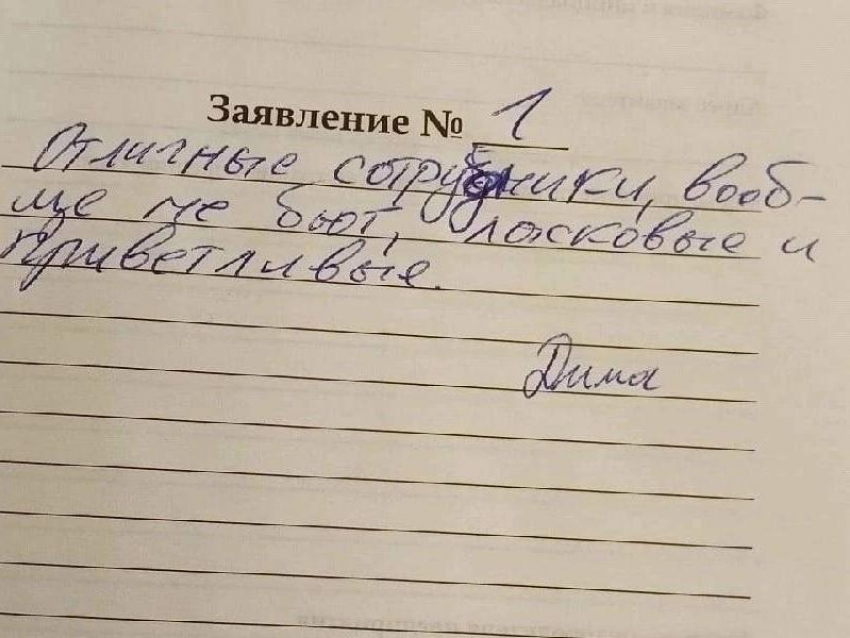 Заявление № 1
Отличные сотрудники, вооб-
ще не бьют, ласковые и
приветливые.
Дима